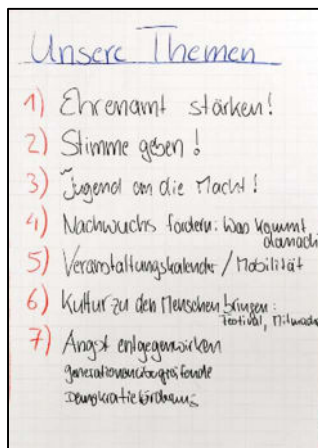 Unsere Themen
1) Ehrenamt stärken!
2) Stimme geben!
3) Jugend an die Macht!
4) Nachwuchs fördern: Was kommt
danach
5) Veranstaltungskalender / Mobilität
6) Kultur zu den Menschen bringen:
Festival, Mitmach
7) Angst entgegenwirken
generationenübergreifende
Demokratiebildung